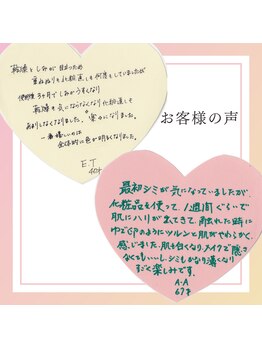 乾燥としみが目立つため
重ねぬりも化粧直しも何度もしていましたが
使用後3ヶ月でしみがうすくなり
乾燥も気にならなくなり化粧直しも
あまりしなくなりました。楽になりました。
一番嬉しいのは
全体的に色が明るくなりました。
E.T
40代
お客様の声
最初シミが気になっていましたが、
化粧品を使って、1週間ぐらいで
肌にハリが出てきて、触れた時に
ゆで卵のようにツルンと肌がやわらかく
感じました。肌も白くなり、メイクで隠さ
なくてもいいし、シミもかなり薄くなり
すごく楽しみです。
A・A
67才